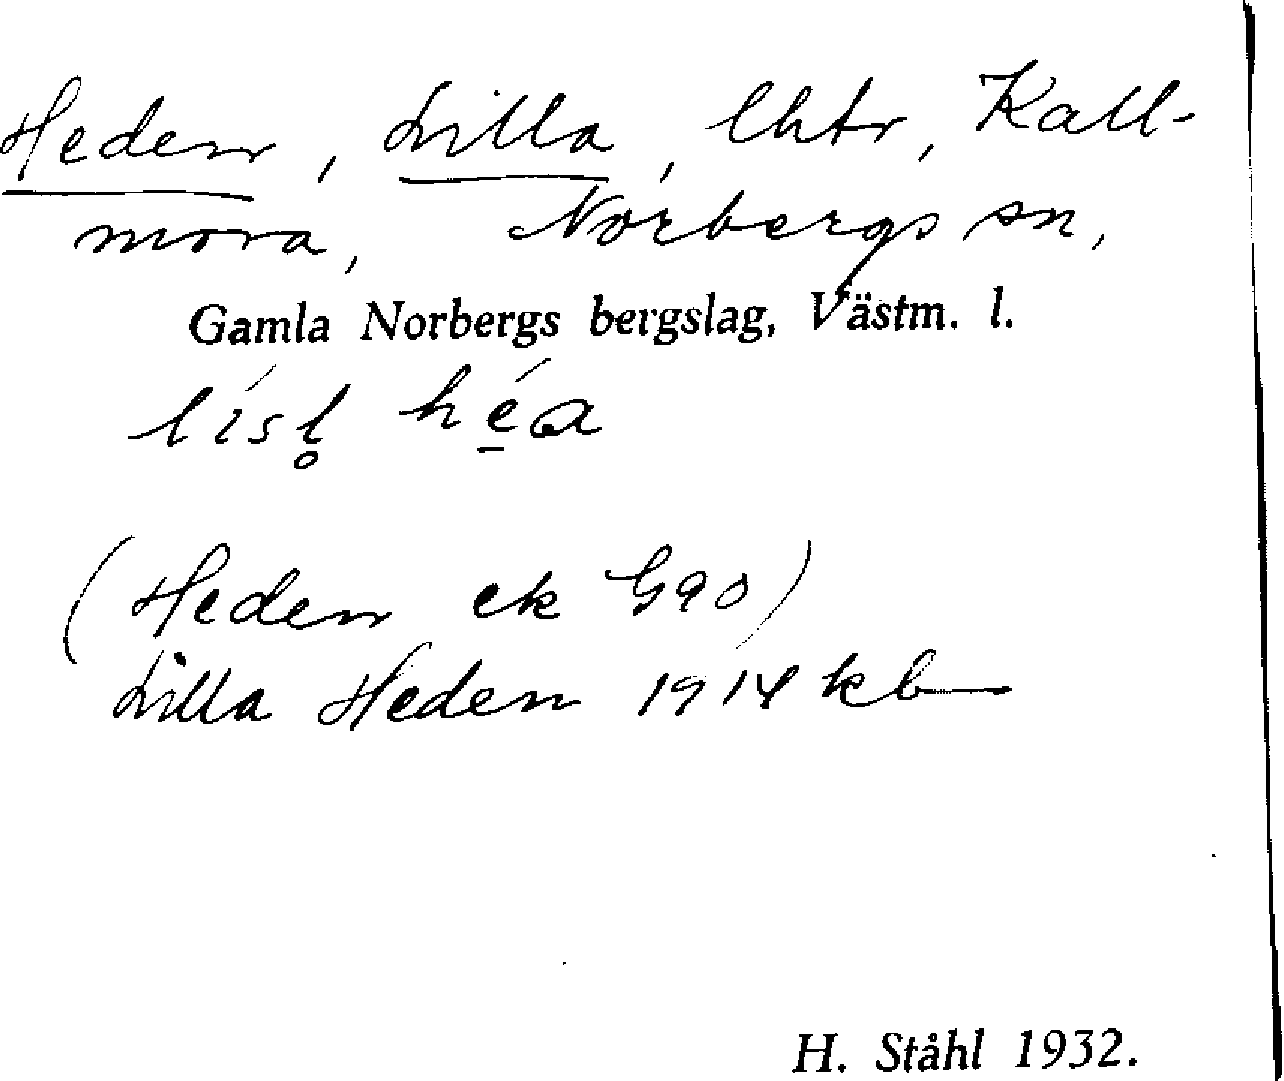 Heden, Lilla, lht, Kall-
mora, Norbergs sn,
Gamla Norbergs bergslag, Västm. l.
lísl̥ hé̱a
(Heden ek G90)
Lilla Heden 1914 kb
H. Ståhl 1932.